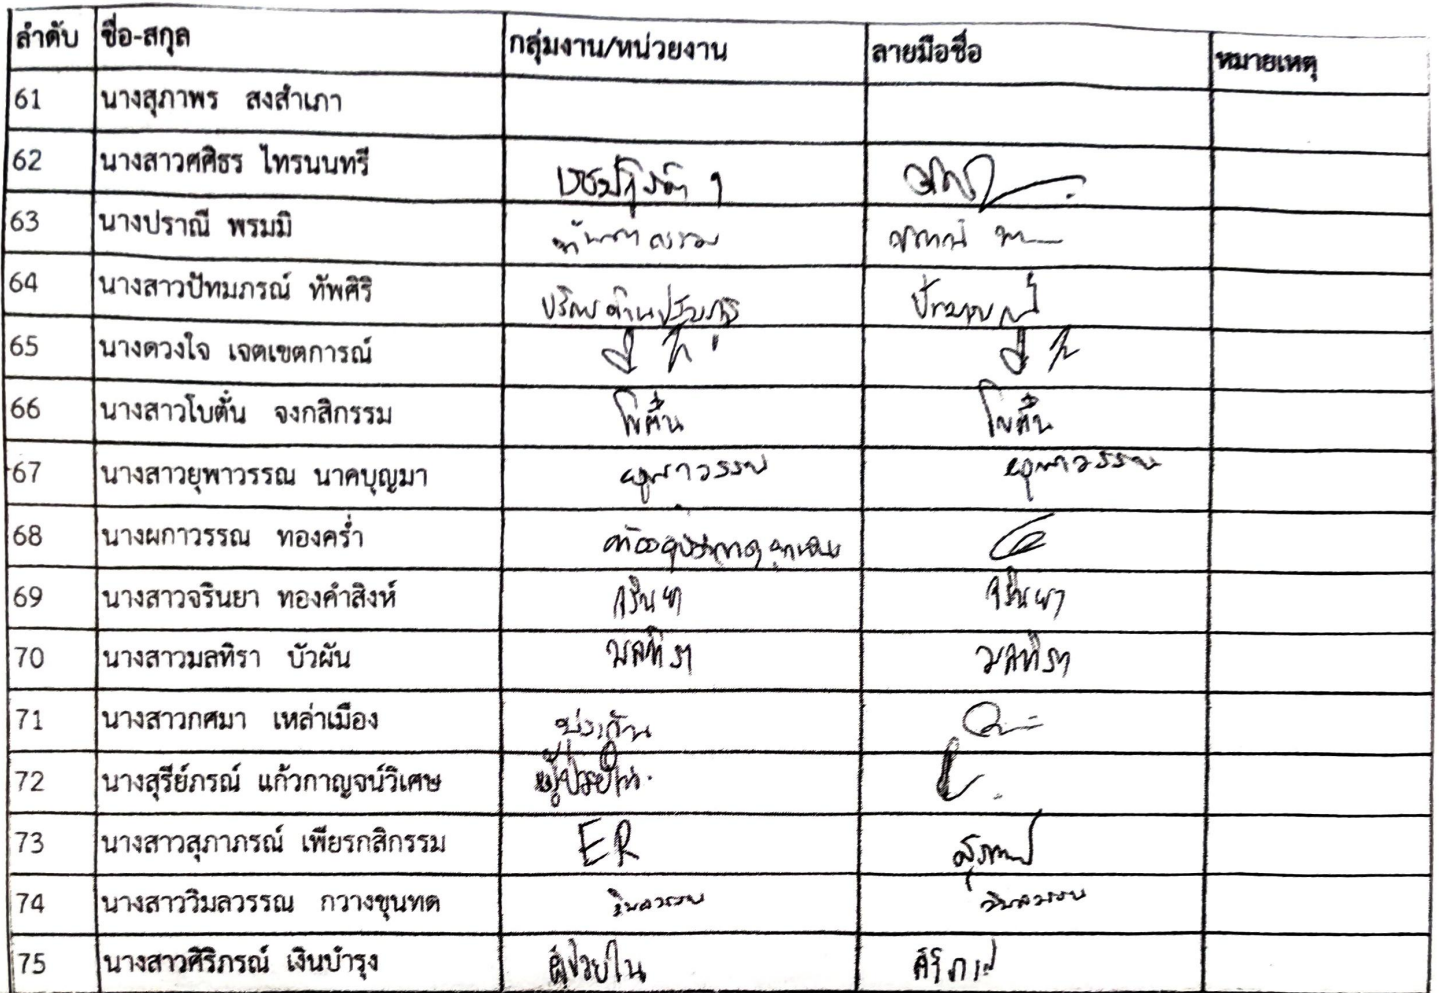 ลำดับ ชื่อ-สกุล กลุ่มงาน/หน่วยงาน ลายมือชื่อ หมายเหตุ
61 นางสุภาพร สงสำเภา
62 นางสาวศศิธร ไทรนนทรี
63 นางปราณี พรมมิ
64 นางสาวปัทมภรณ์ ทัพศิริ
65 นางดวงใจ เจตเขตการณ์
66 นางสาวโบตั๋น จงกสิกรรม โบตั๋น โบตั๋น
67 นางสาวยุพาวรรณ นาคบุญมา ยุพาวรรณ ยุพาวรรณ
68 นางผกาวรรณ ทองคร่ำ
69 นางสาวจรินยา ทองคำสิงห์ จรินยา จรินยา
70 นางสาวมลทิรา บัวผัน มลทิรา มลทิรา
71 นางสาวกศมา เหล่าเมือง
72 นางสุรีย์ภรณ์ แก้วกาญจน์วิเศษ
73 นางสาวสุภาภรณ์ เพียรกสิกรรม ER
74 นางสาววิมลวรรณ กวางขุนทด วิมลวรรณ วิมลวรรณ
75 นางสาวศิริภรณ์ เงินบำรุง ผู้ป่วยใน